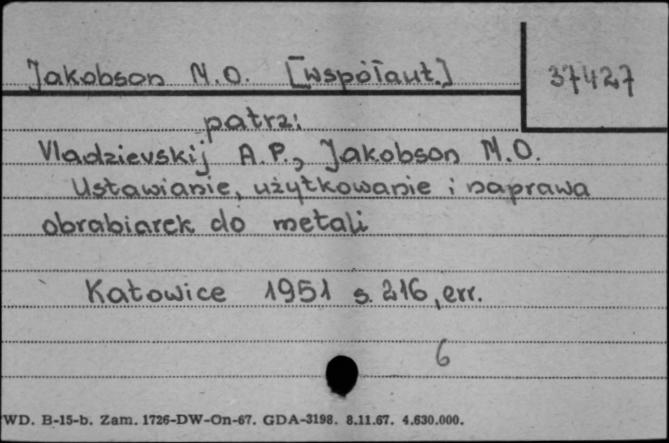 Jakobson M.O. [współaut.] 37427
patrz:
Vladzievskij A.P., Jakobson M.O.
Ustawianie, użytkowanie i naprawa
obrabiarek do metali
Katowice 1951 s. 216, err.
6
WD. B-15-b. Zam. 1726-DW-On-67. GDA-3198. 8.11.67. 4.630.000.